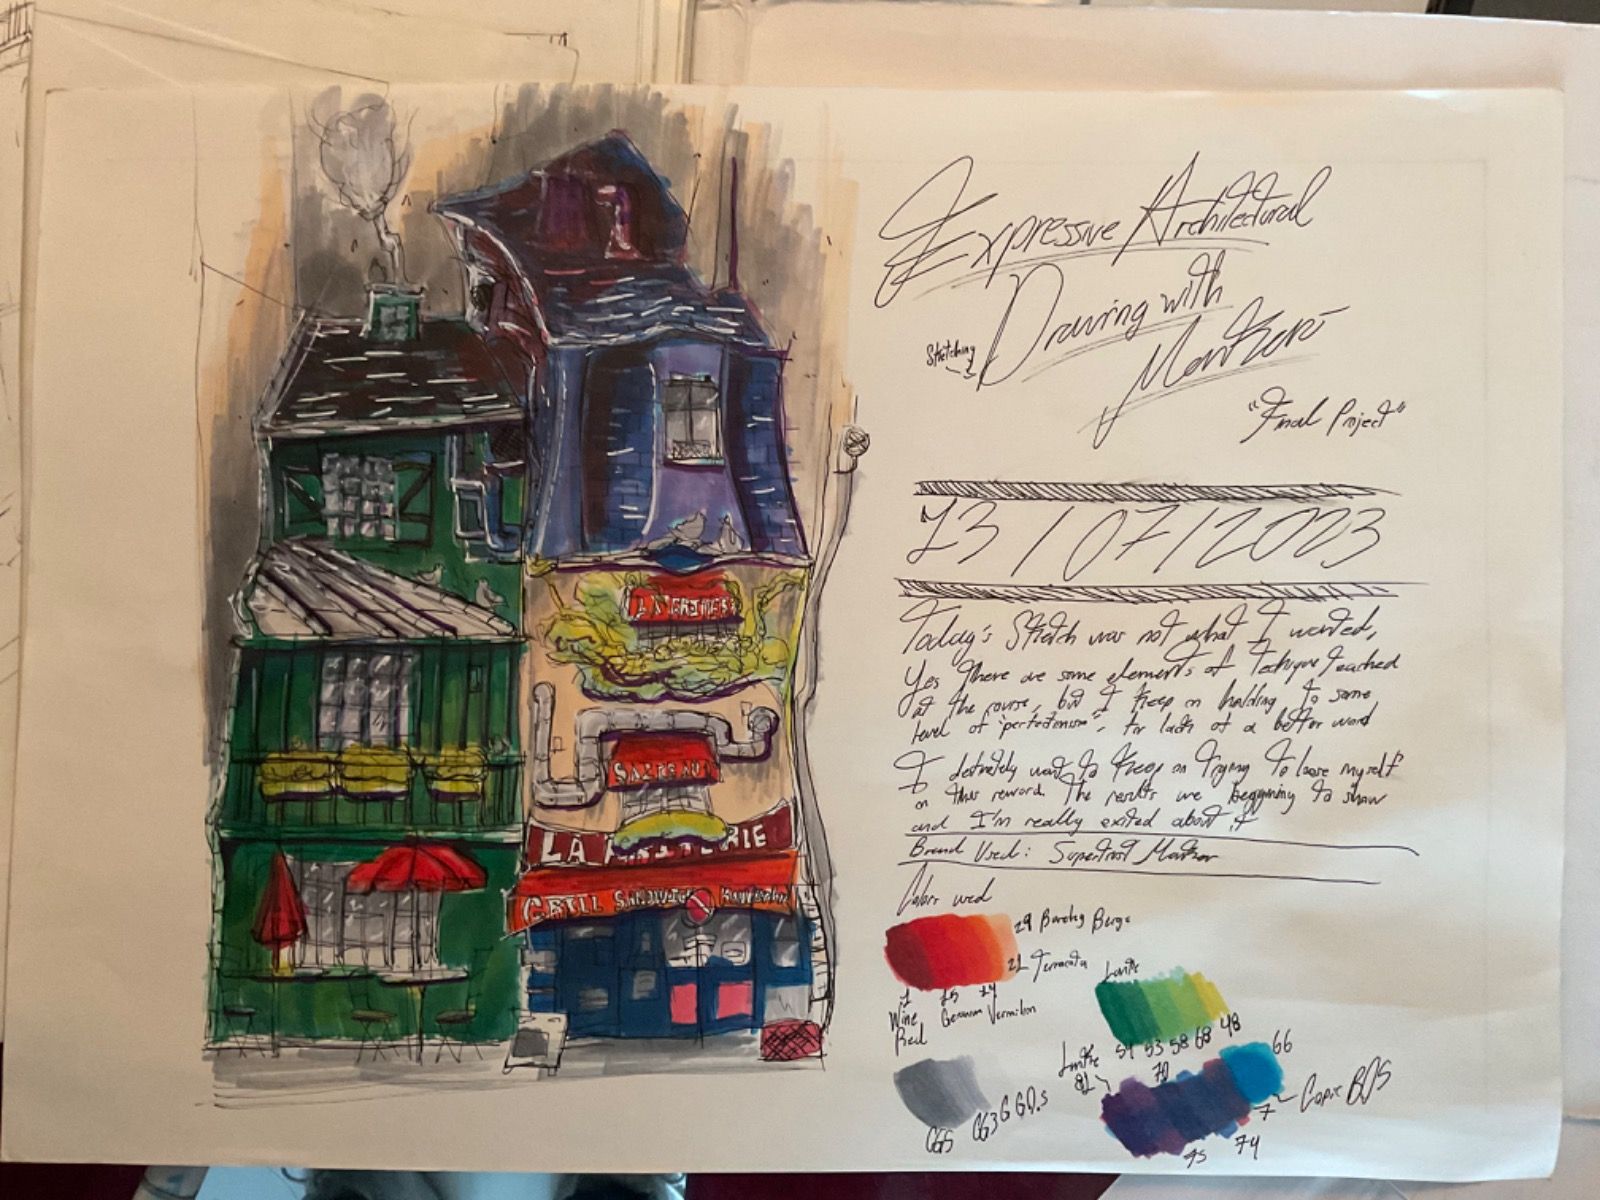 Expressive Architectural
Drawing with
Markers
"Final Project"
13/07/2023
Today's Sketch was not what I wanted,
Yes there are some elements of Technique teached
at the course, but I keep on holding to some
level of "perfectionism", for lack of a better word
I definately want to keep on trying to loose myself
on this reword. The results are beggining to show
and I'm really exited about it
Brand Used: Marker
Colors used
29 Barely Beige
21 Terracota
1 15 24
Wine Geranium Vermilion
Red
54 53 58 68 48
66
81
70
7
Copic
74
CG5 CG3
LA
SALTEAU
LA
GRILL SANDWICH